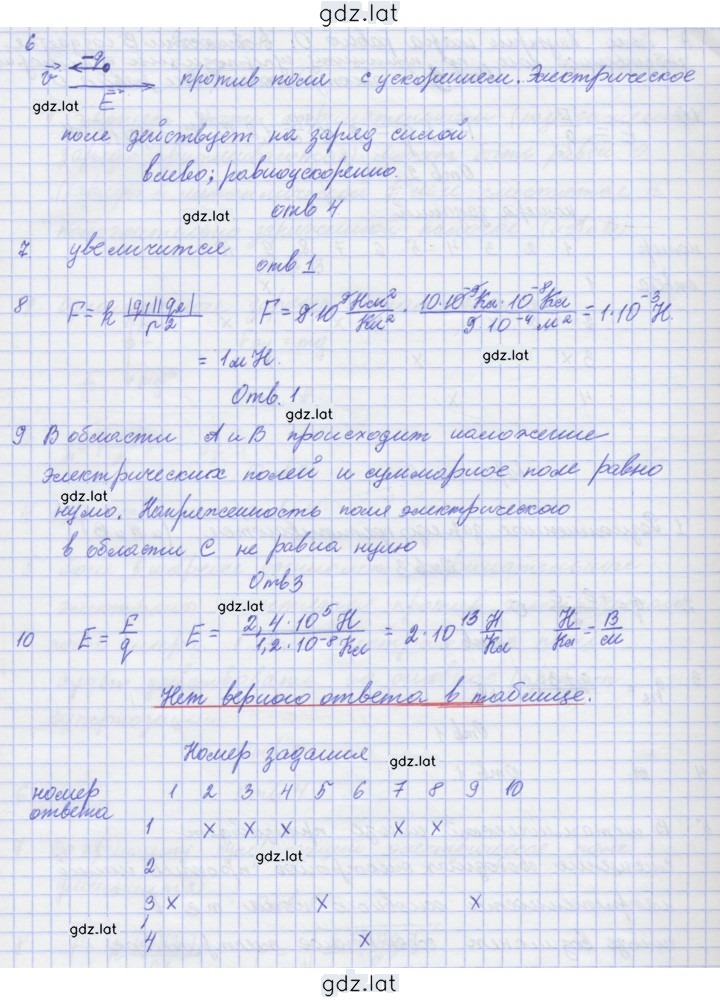 gdz.lat
6 -q
v⃗ E⃗ против поля с ускорением. Электрическое
gdz.lat
поле действует на заряд силой.
влево; равноускоренно.
gdz.lat отв 4
7 увеличится
отв 1
8 F = k |q1||q2| / r² F = 9·10⁹ Нм²/Кл² · 10·10⁻⁹Кл·10⁻⁸Кл / 9·10⁻⁴м² = 1·10⁻³Н.
= 1мН. gdz.lat
Отв. 1
gdz.lat
9 В области А и В происходит наложение
электрических полей и суммарное поле равно
gdz.lat
нулю. Напряженность поля электрического
в области С не равна нулю
Отв 3
gdz.lat
10 E = F/q E = 2,4·10⁵Н / 1,2·10⁻⁸Кл = 2·10¹³ Н/Кл Н/Кл = В/м
Нет верного ответа в таблице.
Номер задания gdz.lat
номер 1 2 3 4 5 6 7 8 9 10
ответа
1 х х х х х
gdz.lat
2
3 х х х
gdz.lat
4 х
gdz.lat